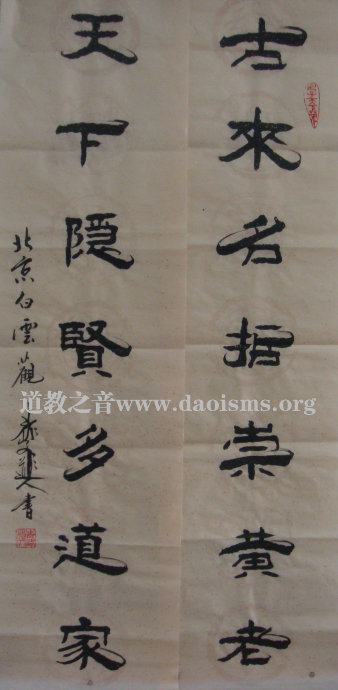 古來名哲崇黄老
天下隐賢多道家
北京白雲觀 書
道教之音www.daoisms.org